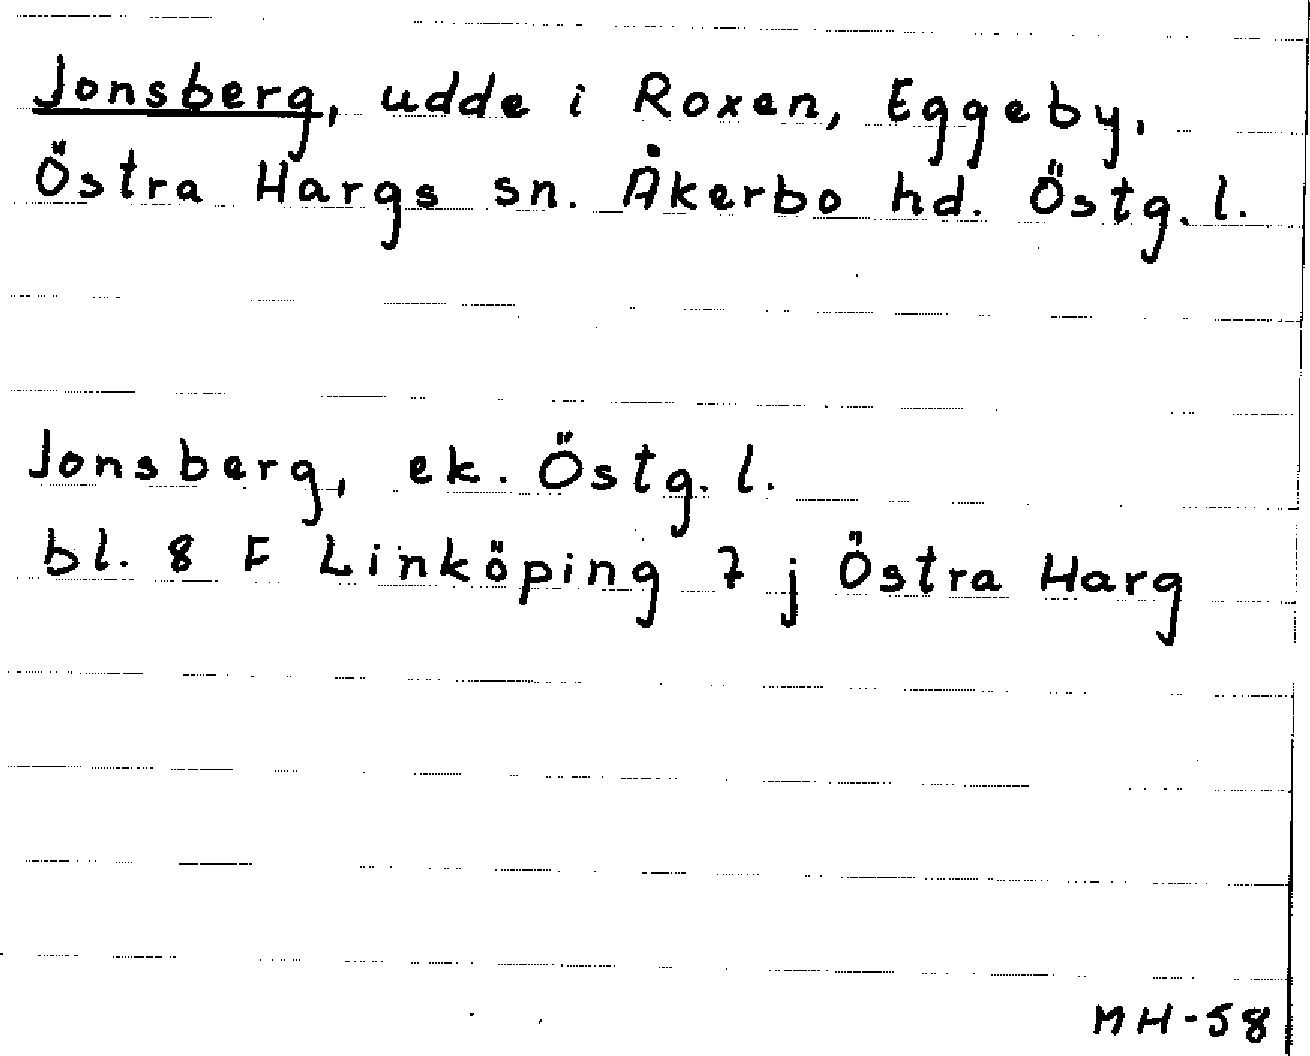 Jonsberg, udde i Roxen, Eggeby,
Östra Hargs sn. Åkerbo hd. Östg. l.
Jonsberg, ek. Östg. l.
bl. 8 F Linköping 7 j Östra Harg
MH-58